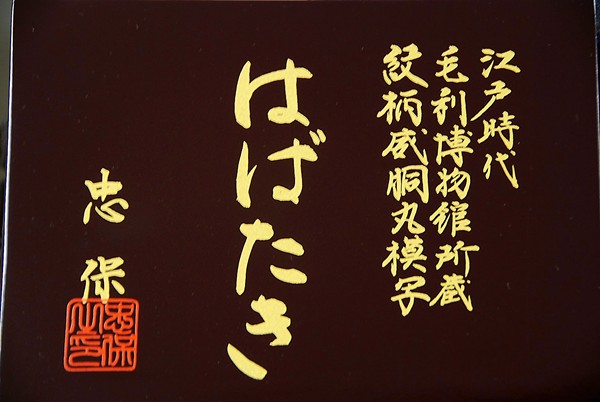 江戸時代
毛利博物館所蔵
紋柄威胴丸模写
はばたき
忠保
忠保之印